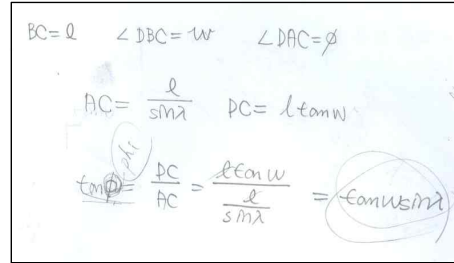 BC = l ∠DBC = w ∠DAC = ϕ
AC = l/sinλ DC = l tan w
phi
tanϕ = DC/AC = l tan w / (l/sinλ) = tanwsinλ